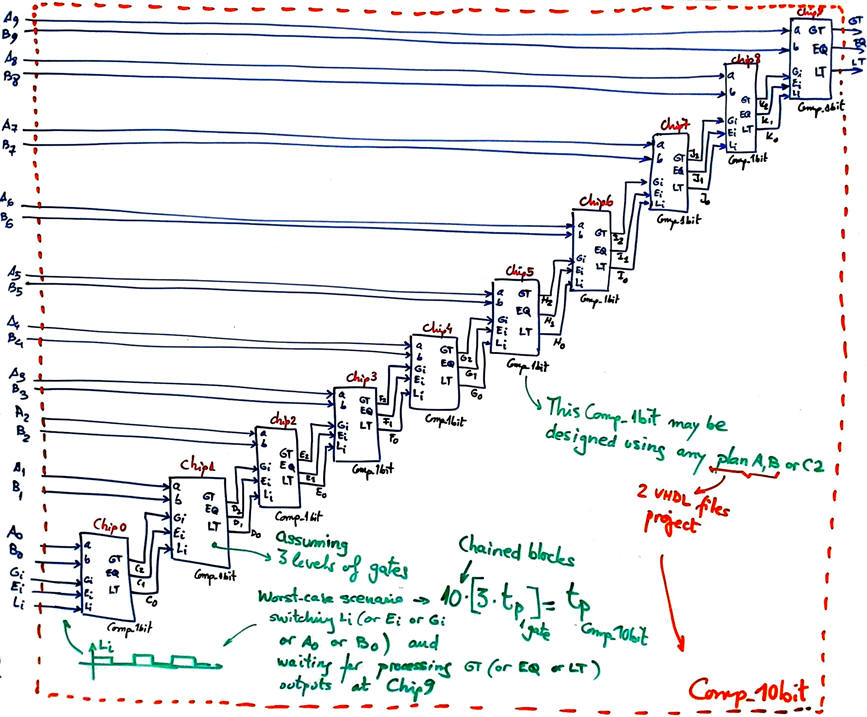 A9
B9
A8
B8
A7
B7
A6
B6
A5
B5
A4
B4
A3
B3
A2
B2
A1
B1
A0
B0
Gi
Ei
Li
Chip9
a GT
b EQ
Gi LT
Ei
Li
Cmp_1bit
GT
EQ
LT
Chip8
a
b
GT
Gi EQ
Ei LT
Li
Cmp_1bit
K2
K1
K0
Chip7
a
b GT
EQ
Gi LT
Ei
Li
Cmp_1bit
J2
J1
J0
Chip6
a
b GT
EQ
Gi
Ei LT
Li
Cmp_1bit
I2
I1
I0
Chip5
a GT
b
EQ
Gi
Ei LT
Li
Cmp_1bit
H2
H1
H0
Chip4
a
b GT
Gi EQ
Ei LT
Li
Cmp_1bit
G2
G1
G0
Chip3
a
b GT
EQ
Gi
Ei LT
Li
Cmp_1bit
F2
F1
F0
Chip2
a
b GT
Gi EQ
Ei LT
Li
Comp_1bit
E2
E1
E0
Chip1
a
b GT
Gi EQ
Ei LT
Li
Cmp_1bit
D2
D1
D0
Chip0
a
b GT
EQ
Gi
Ei LT
Li
Comp_1bit
C2
C1
C0
This Comp_1bit may be
designed using any plan A, B or C2
2 VHDL files
project
assuming
3 levels of gates
Chained blocks
Worst-case scenario → 10·[3·tp 1gate] = tp Comp_10bit
switching Li (or Ei or Gi
or A0 or B0) and
waiting for processing GT (or EQ or LT)
outputs at Chip9
Li
Comp_10bit